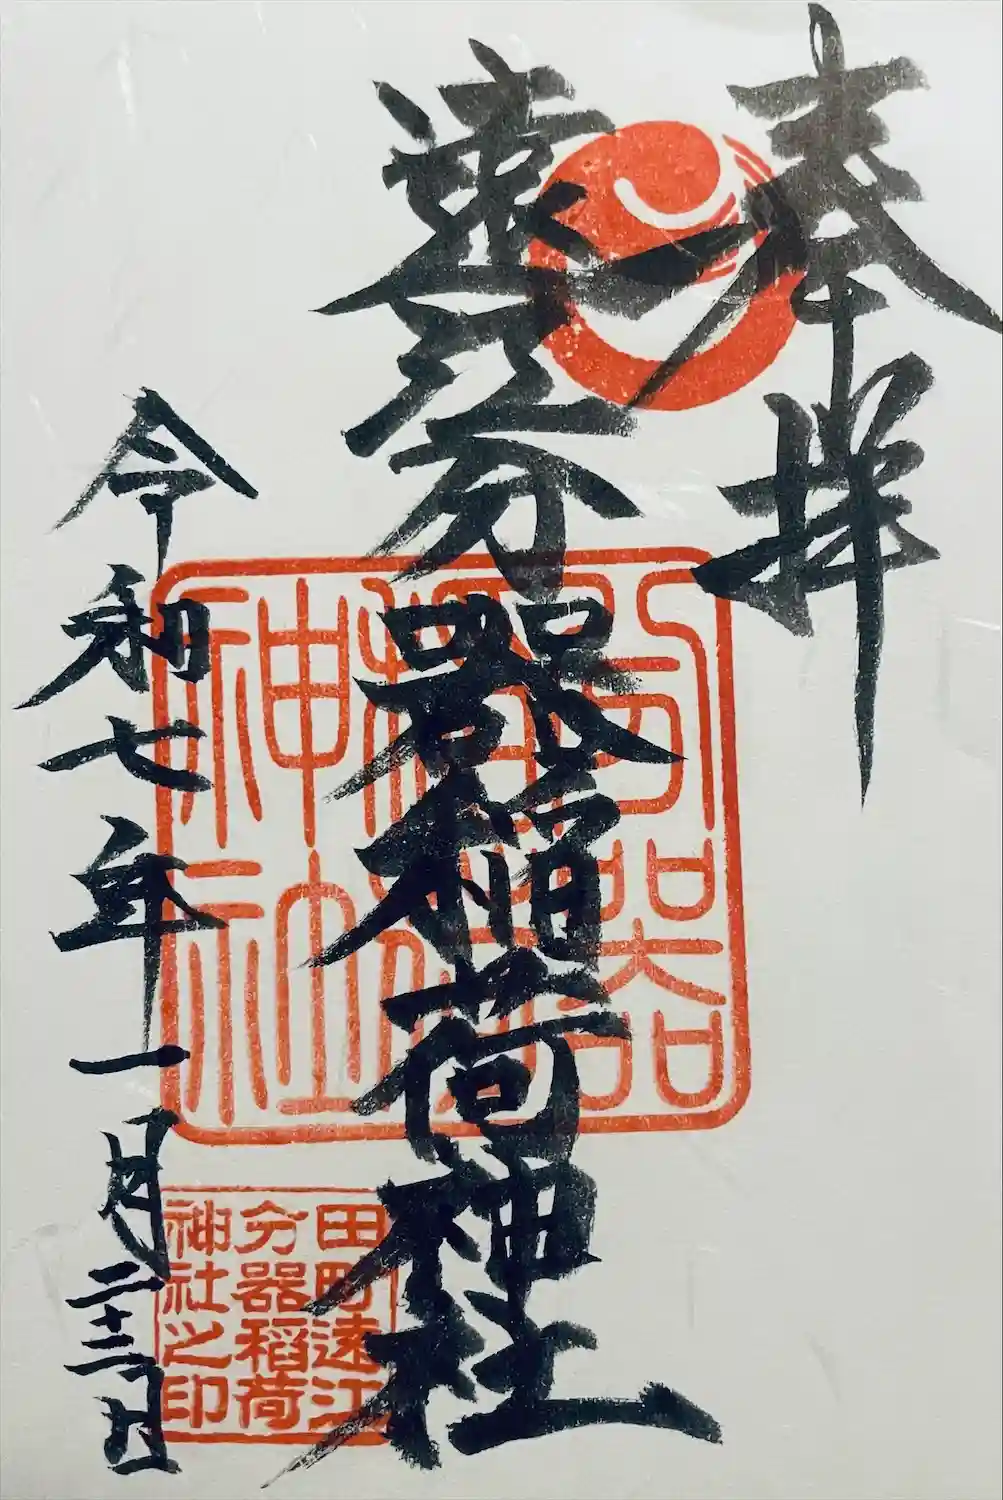 奉拝
遠江分器稲荷神社
令和七年一月二十三日
分器稲荷神社
田町遠江
分器稲荷
神社之印